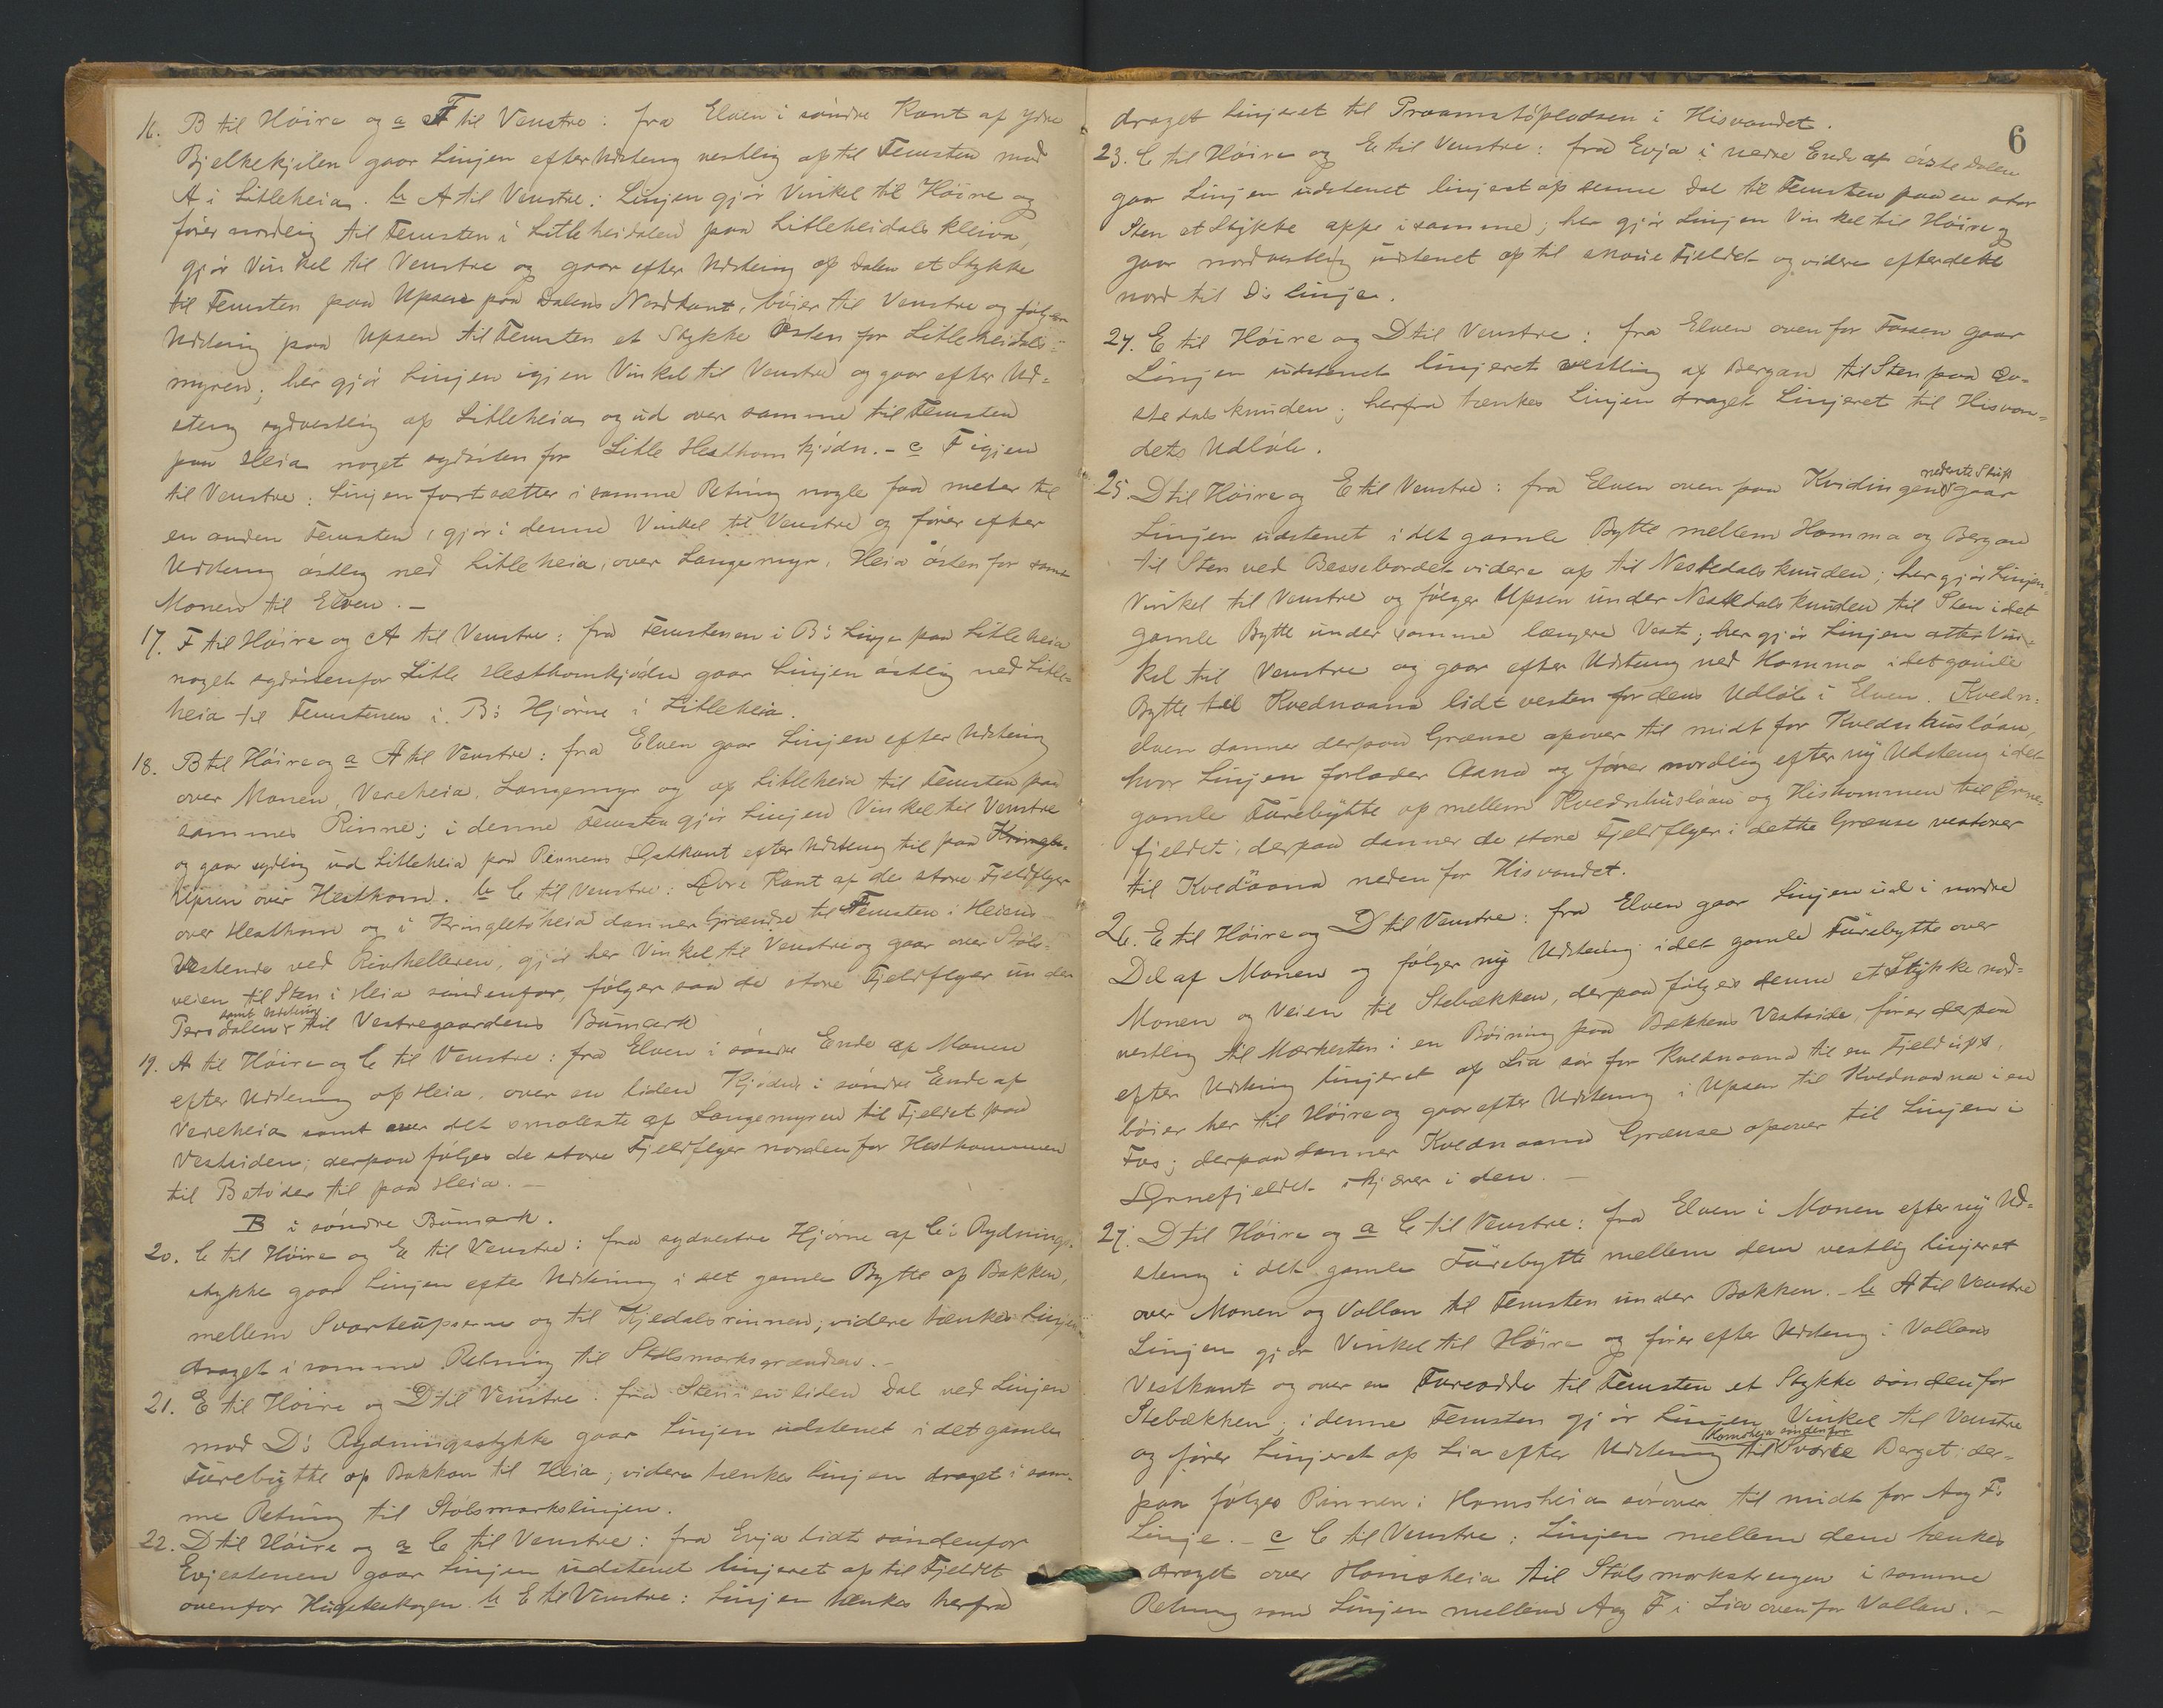 16. B til Höire og a F til Venstre: fra Elven i söndre Kant af ydre
Bjelkekjilen gaar Linjen efter Udstening vestlig op til Femsten mod
A i Litleheia. b A til Venstre: Linjen gjör Vinkel til Höire og
förer nordlig til Femsten i Litleheidalen paa Litleheidals kleiva,
gjör Vinkel til Venstre og gaar efter Udstening op Dalen et Stykke
til Femsten paa Upsen paa Dalens Nordkant, böier til Venstre og fölger
Udstening paa Upsen til Femsten et Stykke Østen for Litleheidals-
myren; her gjör Linjen igjen Vinkel til Venstre og gaar efter Ud-
stening sydvestlig op Litleheia og ud over samme til Femsten
paa Heia noget sydösten for Litle Hesthomkjödn. - c F igjen
til Venstre: Linjen fortsætter i samme Retning nogle faa meter til
en anden Femsten, gjör i denne Vinkel til Venstre og förer efter
Udstening östlig ned Litleheia, over Langemyr, Heia östen for samt
Monen til Elven. -
17. F til Höire og A til Venstre: fra Femstenen i B's Linje paa Litleheia
noget sydöstenfor Litle Hesthomkjödn gaar Linjen östlig ned Litle-
heia til Femstenen i B's Hjörne i Litleheia.
18. B til Höire og a A til Venstre: fra Elven gaar Linjen efter Udstening
over Monen, Vereheia, Langemyr og op Litleheia til Femsten paa
sammes Rinne; i denne Femsten gjör Linjen Vinkel til Venstre
og gaar sydlig ud Litleheia paa Rinnens Østkant efter Udstening til paa
Upsen over Hesthom. b C til Venstre: Övre Kant af de store Fjeldflyer
over Hesthom og i Kringletsheia danner Grændse til Femsten i Heiens
Vestende ved Rinhelleren, gjör her Vinkel til Venstre og gaar over Stöls-
veien til Sten i Heia söndenfor, fölger saa de store Fjeldflyer under
samt Udstening
Persdalen til Vestregaardens Bumark
19. A til Höire og C til Venstre: fra Elven i söndre Ende af Monen
efter Udstening op Heia, over en liden Kjödn i söndre Ende af
Vereheia samt over det smaleste af Langemyren til Fjeldet paa
Vestsiden; derpaa fölges de store Fjeldflyer norden for Hesthommen
til Betöder til paa Heia. -
B i söndre Bumark.
20. C til Höire og E til Venstre: fra sydvestre Hjörne af C's Rydnings-
stykke gaar Linjen efter Udstening i det gamle Bytte op Bakken,
mellem Svarteupserne og til Kjedalsrinnen; videre tænkes Linjen
draget i samme Retning til Stölsmarksgrændsen. -
21. E til Höire og D til Venstre: fra Sten i en liden Dal ved Linjen
mod D's Rydningsstykke gaar Linjen udstenet i det gamle
Furebytte op Bakkan til Heia; videre tænkes Linjen draget i sam-
me Retning til Stölsmarkslinjen.
22. D til Höire og a C til Venstre: fra Evja lidt söndenfor
Evjestenen gaar Linjen udstenet linjeret op til Fjeldet
ovenfor Hugsteskogen. b E til Venstre: Linjen tænkes herfra
6
draget linjeret til Praamstöpladsen i Hisvandet.
23. C til Höire og E til Venstre: fra Evja i nedre Ende af östedalen
gaar Linjen udstenet linjeret op denne Dal til Femsten paa en stor
Sten et Stykke oppe i samme; her gjör Linjen Vinkel til Höire og
gaar nordvestlig udstenet op til snaue Fjeldet og videre efter dette
nord til D's linje.
24. E til Höire og D til Venstre: fra Elven ovenfor Fossen gaar
Linjen udstenet linjeret vestlig op Bergan til Sten paa Øv-
stedalsknuden; herfra tænkes Linjen draget Linjeret til Hisvan-
dets Udlöb.
nederste Skift
25. D til Höire og E til Venstre: fra Elven oven paa Kvidingen gaar
Linjen udstenet i det gamle Bytte mellem Homma og Bergan
til Sten ved Bessebordet videre op til Nestedalsknuden; her gjör Linjen
Vinkel til Venstre og fölger Upsen under Nestedalsknuden til Sten i det
gamle Bytte under samme længere Vest; her gjör Linjen atter Vin-
kel til Venstre og gaar efter Udstening ned Homma i det gamle
Bytte til Kvednaana lidt vesten for dens Udlöb i Elven. Kvedn-
elven danner derpaa Grænse opover til midt for Kvednhuslöau,
hvor Linjen forlader Aana og förer nordlig efter ny Udstening i det
gamle Furebytte op mellem Kvednhuslöau og Hishommen til Ørne-
fjeldet; derpaa danner de store Fjeldflyer i dette Grænse vestover
til Kvednaana neden for Hisvandet.
26. E til Höire og D til Venstre: fra Elven gaar Linjen ud i nordre
Del af Monen og fölger ny Udstening i det gamle Furebytte over
Monen og Veien til Stebækken, derpaa fölges denne et Stykke nord-
vestlig til Mærkesten i en Böining paa Bækkens Vestside, förer derpaa
efter Udstening linjeret op Lia sör for Kvednaana til en Fjeldups,
böier her til Höire og gaar efter Udstening i Upsen til Kvednaana i en
Fos; derpaa danner Kvednaana Grænse opover til Linjen i
Ørnefjeldet skjærer i den. -
27. D til Höire og a C til Venstre: fra Elven i Monen efter ny Ud-
stening i det gamle Furebytte mellem dem vestlig linjeret
over Monen og Vollan til Femsten under Bakken. - b A til Venstre
Linjen gjör Vinkel til Höire og förer efter Udstening i Vollans
Vestkant og over en Fureodde til Femsten et Stykke söndenfor
Stebækken; i denne Femsten gjör Linjen Vinkel til Venstre
Homsheia söndenfor
og förer Linjeret op Lia efter Udstening til Svarte Berget: der-
paa fölges Rinnen i Homsheia sörover til midt for A og F's
Linje. - c C til Venstre: Linjen mellem dem tænkes
draget over Homsheia til Stölsmarkstrengen i samme
Retning som Linjen mellem A og F i Lia ovenfor Vollan. -